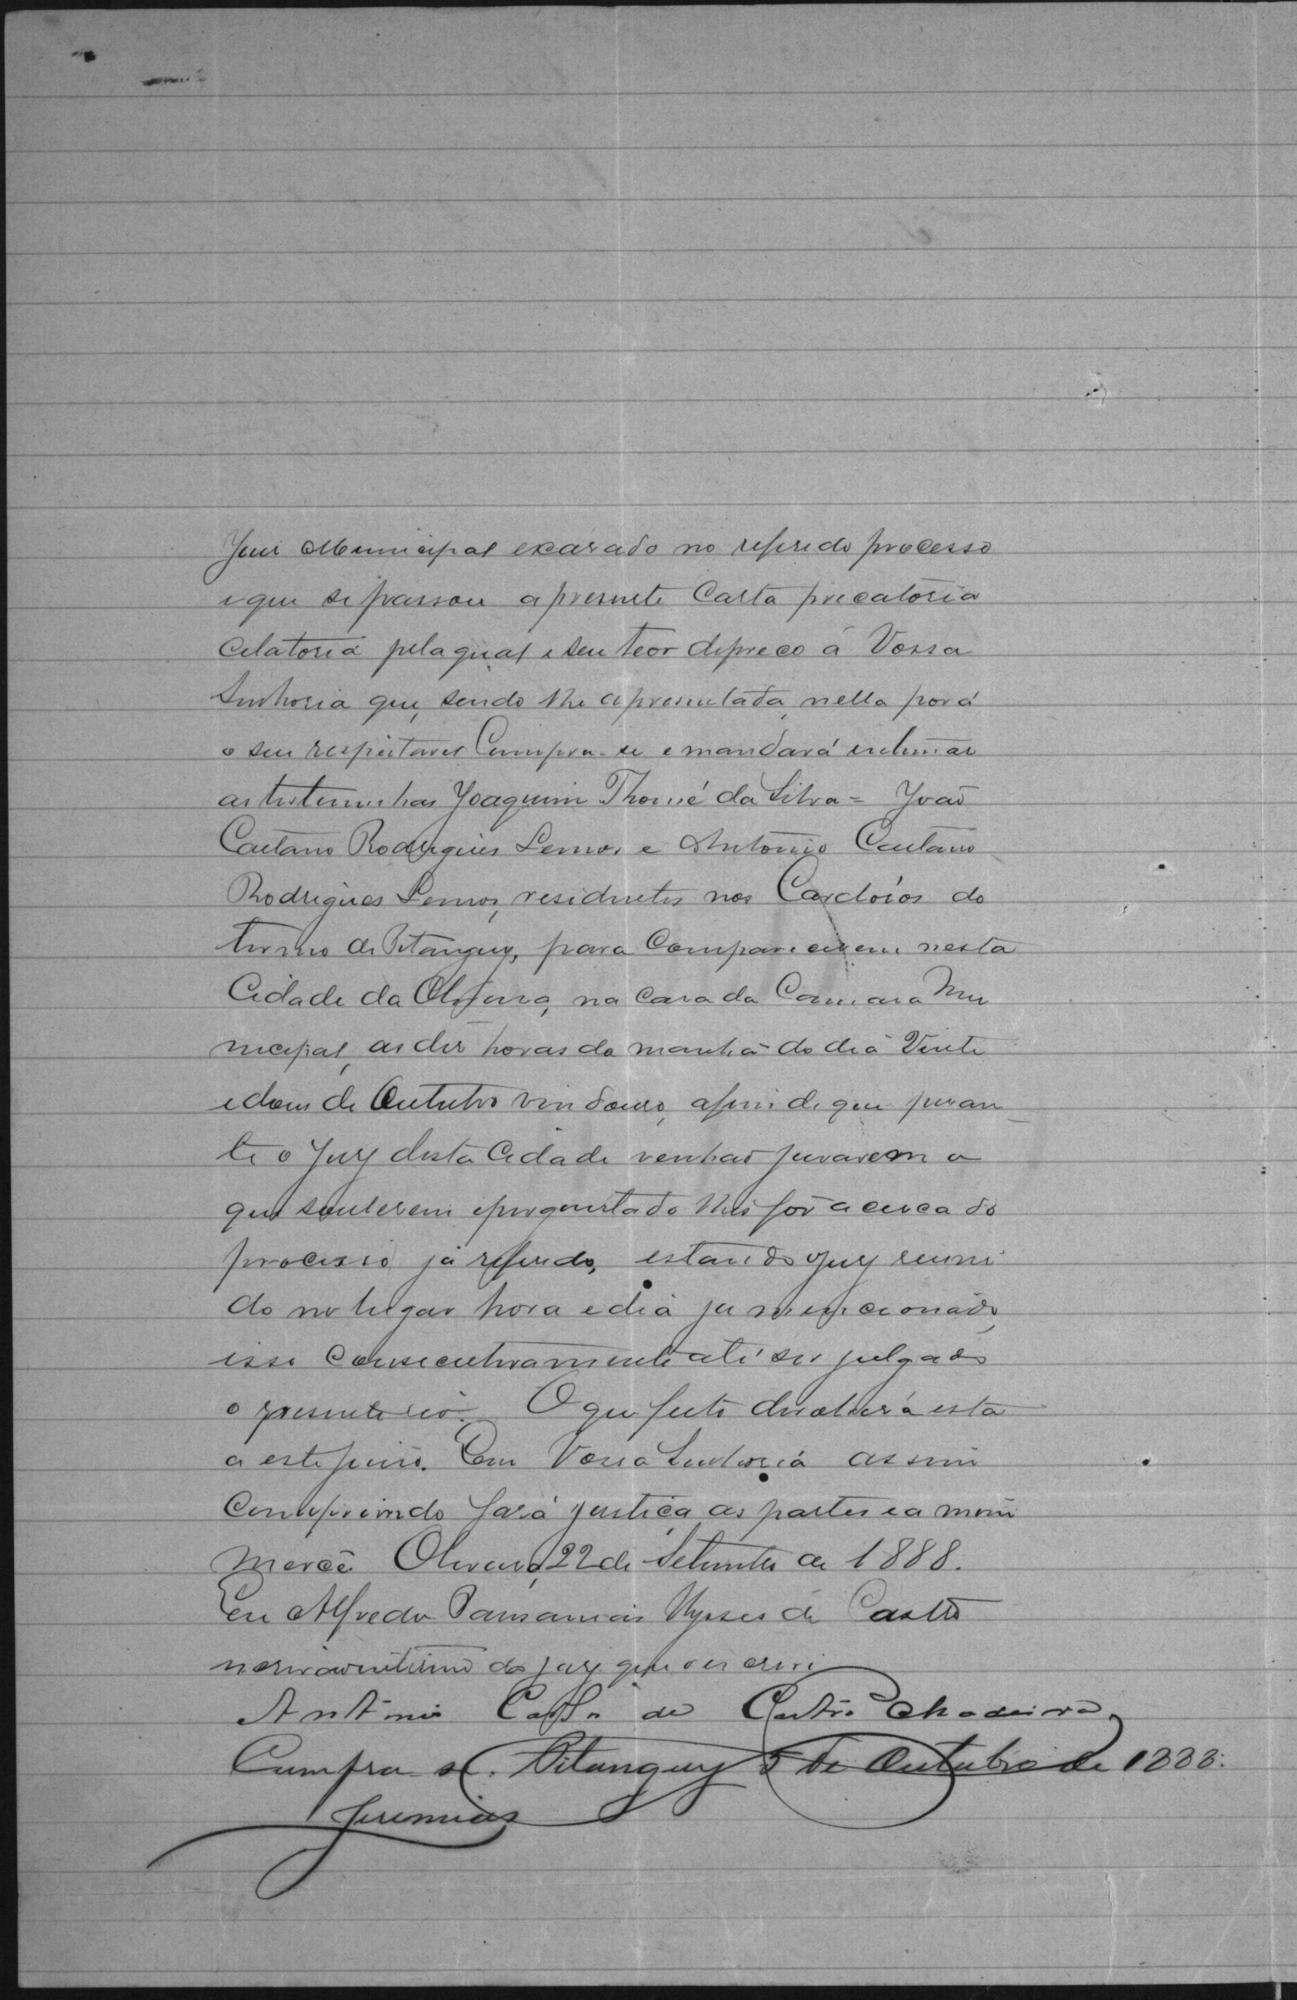 Juiz Municipal exarado no referido processo
e que se passou a presente Carta precatoria
Citatoria pela qual e seu teor depreco á Vossa
Senhoria que, sendo lhe apresentada, nella porá
o seu respeitavel Cumpra-se e mandará intimar
as testemunhas Joaquim Thomé da Silva = João
Caetano Rodrigues Lemos e Antonio Caetano
Rodrigues Lemos, residentes nos Cardosos do
termo de Pitanguy, para comparecerem nesta
Cidade da Oliveira, na casa da Camara Mu
nicipal, as dez horas da manhã do dia Vinte
e dous de Outubro vindouro, afim de que peran
te o Jury desta Cidade venhaõ jurarem o
que souberem e perguntado lhes for a cerca do
processo já referido, estando o Jury reuni
do no lugar hora e dia ja mencionado,
isso consecutivamente até ser julgado
o presente reo. O que feito devolverá esta
a este juizo. Em Vossa Senhoria assim
cumprindo fará justiça as partes e a mim
mercê Oliveira, 22 de Setembro de 1888.
Eu Alfredo Pausanias Ulysses de Castro
escrivão interino do jury que o escrevi
Antonio de Castro
Cumpra-se. Pitanguy 5 de Outubro de 1888.
Jeremias